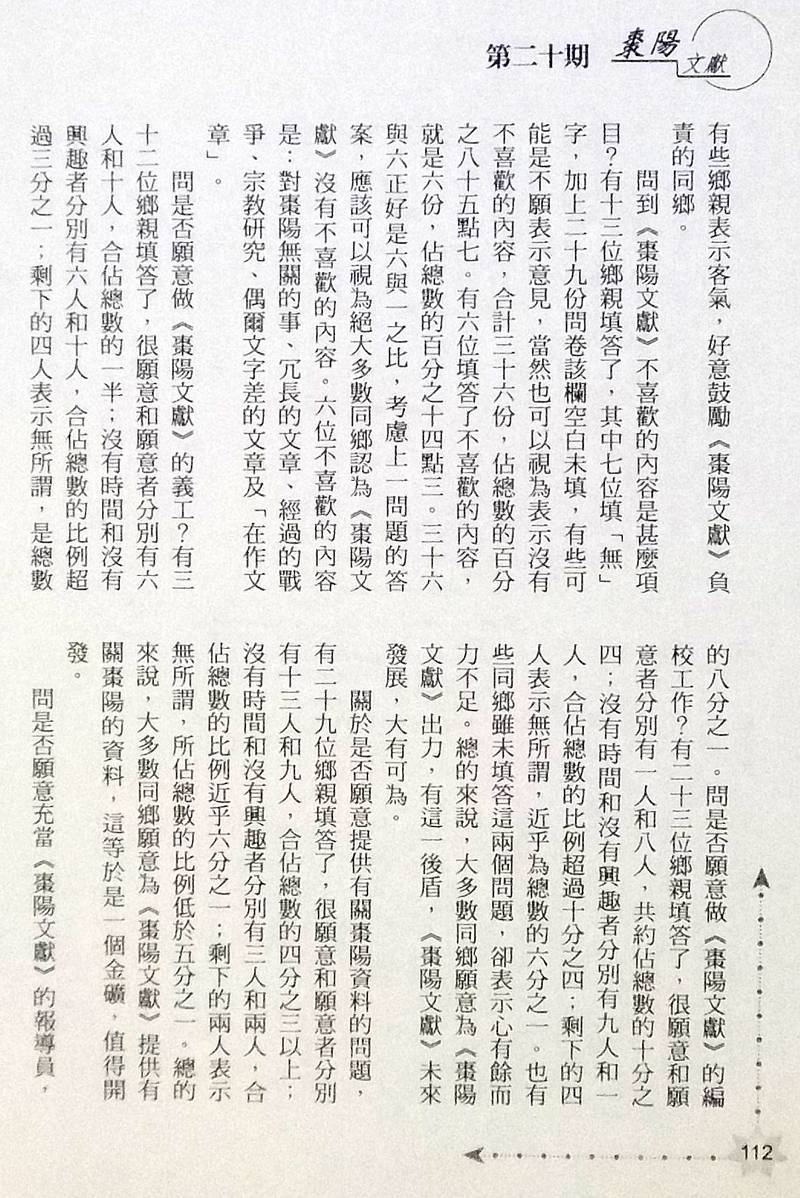 第二十期
棗陽
文獻
有些鄉親表示客氣，好意鼓勵《棗陽文獻》負
責的同鄉。
問到《棗陽文獻》不喜歡的內容是甚麼項
目？有十三位鄉親填答了，其中七位填「無」
字，加上二十九份問卷該欄空白未填，有些可
能是不願表示意見，當然也可以視為表示沒有
不喜歡的內容，合計三十六份，佔總數的百分
之八十五點七。有六位填答了不喜歡的內容，
就是六份，佔總數的百分之十四點三。三十六
與六正好是六與一之比，考慮上一問題的答
案，應該可以視為絕大多數同鄉認為《棗陽文
獻》沒有不喜歡的內容。六位不喜歡的內容
是：對棗陽無關的事、冗長的文章、經過的戰
爭、宗教研究、偶爾文字差的文章及「在作文
章」。
問是否願意做《棗陽文獻》的義工？有三
十二位鄉親填答了，很願意和願意者分別有六
人和十人，合佔總數的一半；沒有時間和沒有
興趣者分別有六人和十人，合佔總數的比例超
過三分之一；剩下的四人表示無所謂，是總數
的八分之一。問是否願意做《棗陽文獻》的編
校工作？有二十三位鄉親填答了，很願意和願
意者分別有一人和八人，共約佔總數的十分之
四；沒有時間和沒有興趣者分別有九人和一
人，合佔總數的比例超過十分之四；剩下的四
人表示無所謂，近乎為總數的六分之一。也有
些同鄉雖未填答這兩個問題，卻表示心有餘而
力不足。總的來說，大多數同鄉願意為《棗陽
文獻》出力，有這一後盾，《棗陽文獻》未來
發展，大有可為。
關於是否願意提供有關棗陽資料的問題，
有二十九位鄉親填答了，很願意和願意者分別
有十三人和九人，合佔總數的四分之三以上；
沒有時間和沒有興趣者分別有三人和兩人，合
佔總數的比例近乎六分之一；剩下的兩人表示
無所謂，所佔總數的比例低於五分之一。總的
來說，大多數同鄉願意為《棗陽文獻》提供有
關棗陽的資料，這等於是一個金礦，值得開
發。
問是否願意充當《棗陽文獻》的報導員，
112